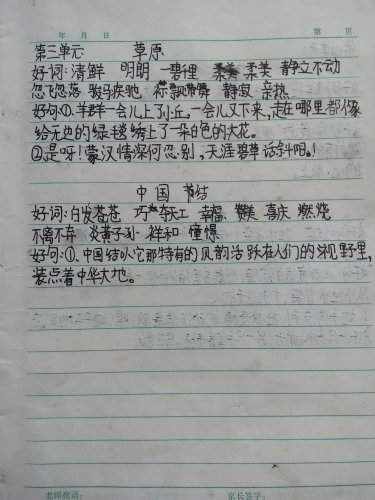 年 月 日 第 页
第三单元 草原
好词:清鲜 明朗 一碧千里 柔美 静立不动
忽飞忽落 骏马疾驰 襟飘带舞 静寂 亲热
好句:①.羊群一会儿上了小丘,一会儿又下来,走在哪里都像
给无边的绿毯绣上了一朵白色的大花。
②.是呀!蒙汉情深何忍别,天涯碧草话斜阳。!
中国 节结
好词:白发苍苍 巧夺天工 幸福、赞美 喜庆 燃烧
不离不弃 炎黄子孙 祥和 憧憬
好句:①.中国结以它那特有的风韵活跃在人们的视野里,
装点着中华大地。
老师批语: 家长签字: